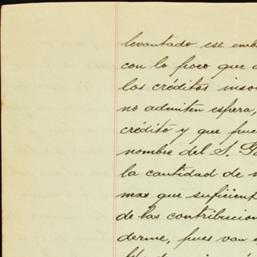 levantado ese emb
con lo poco que a
los créditos inso
no admiten espera,
crédito y que pue
nombre del S. Ga
la cantidad de
mas que suficient
de las contribucion
derme, pues van